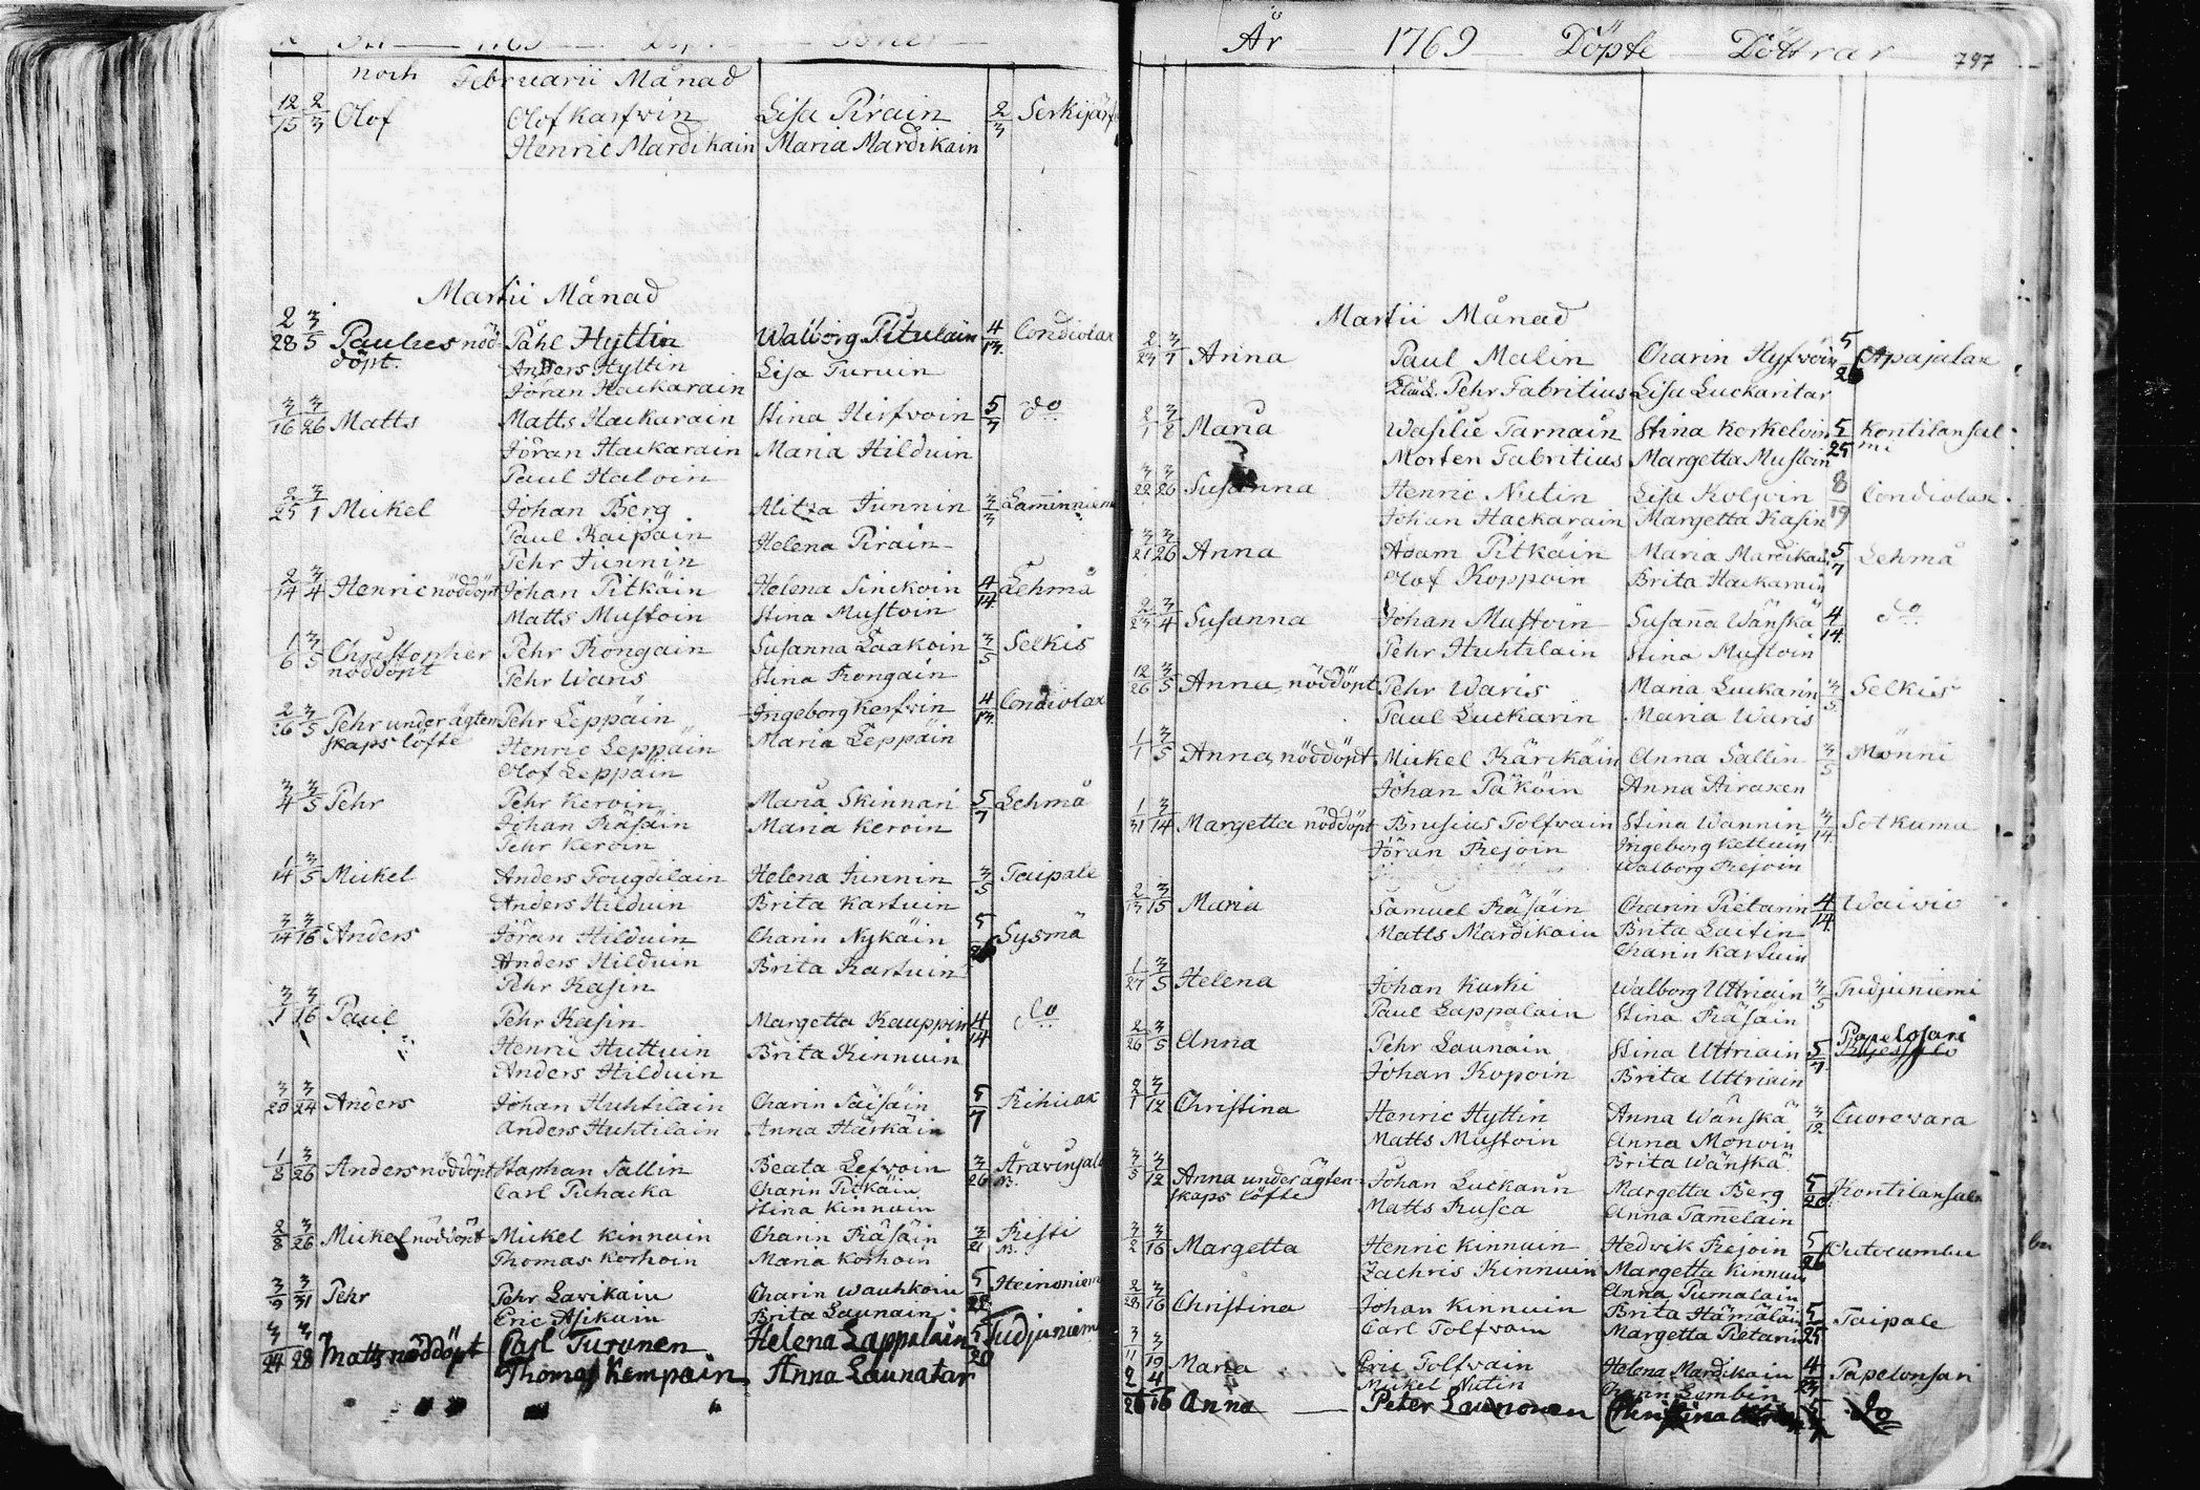 År 1769 Döpte Döttrar 797
noch Februarii Månad
12/15 2/3 Olof Olof Karfvin Lisa Pirain 2/3 Serkijärf
Henric Mardikain Maria Mardikain
Martii Månad
2/28 3/5 Paulus nöd- Påhl Hyttin Walborg Pitulain 4/13 Condiolax
döpt. Anders Hyttin Lisa Turuin
Jöran Hackarain
3/16 3/26 Matts Matts Hackarain Stina Hirfvoin 5/7 do
Jöran Hackarain Maria Hilduin
Paul Haloin
2/25 3/1 Mickel Johan Berg Alitza Junnin 3/3 Lam̄inniem
Paul Kaipain Helena Pirain
Pehr Junnin
2/14 3/4 Henric nöddöpt Johan Pitkäin Helena Sinckoin 4/14 Lehmå
Matts Mustoin Stina Mustoin
1/6 3/5 Christopher Pehr Rongain Susanna Laakoin 3/5 Selkis
nöddöpt Pehr Waris Stina Rongain
2/16 3/5 Pehr under ägten Pehr Leppäin Ingeborg Kerfvin 4/13 Condiolax
skaps löfte Henric Leppäin Maria Leppäin
Olof Leppäin
3/4 3/5 Pehr Pehr Keroin Maria Skinnari 5/7 Lehmå
Johan Räsäin Maria Keroin
Pehr Keroin
1/14 3/5 Mickel Anders Fougdilain Helena Junnin 3/5 Taipale
Anders Hilduin Brita Kartuin
3/14 3/16 Anders Jöran Hilduin Charin Nykäin 5/ Sysmä
Anders Hilduin Brita Kartuin
Pehr Kasin
3/1 3/16 Paul Pehr Kasin Margetta Kauppin 4/14 do
Henric Huttuin Brita Kinnuin
Anders Hilduin
3/20 3/24 Anders Johan Huhtilain Charin Säisäin 5/7 Rihilax
Anders Huhtilain Anna Härkäin
1/8 3/26 Anders nöddöpt Staphan Sallin Beata Lefvoin 3/26 Aravinsalo
Carl Puhacka Charin Pitkäin
Stina Kinnuin
2/8 3/26 Mickel nöddöpt Mickel Kinnuin Charin Räsäin 3/21 Risti
Thomas Korhoin Maria Korhoin
3/9 3/31 Pehr Pehr Lavikain Charin Wauhkoin 5/28 Heinoniem
Eric Asikain Brita Launain
3/24 3/28 Matts nöddöpt Carl Turunen Helena Lappalain 5/20 Tudjuniem
Thomas Kempain Anna Launatar
Martii Månad
2/27 3/7 Anna Paul Malin Charin Hyfvöin 5/ Apajalax
Pehr Fabritius Lisa Luckaritar
2/1 3/8 Maria Wasilie Tarnain Stina Korkeloin 5/25 Kontilansal
Morten Fabritius Margetta Mustoin mi
3/22 3/26 Susanna Henric Nutin Lisa Koljoin 8/19 Condiolax
Johan Hackarain Margetta Kasin
3/21 3/26 Anna Adam Pitkäin Maria Mardikain 5/7 Lehmå
Olof Koppoin Brita Hackarain
2/23 3/4 Susanna Johan Mustoin Susan̄a Wänskä 4/14 do
Pehr Huhtilain Stina Mustoin
12/26 3/5 Anna, nöddöpt Pehr Waris Maria Luckarin 3/5 Selkis
Paul Luckarin Maria Waris
1/1 3/5 Anna, nöddöpt Mickel Kärckäin Anna Sallin 3/5 Mönni
Johan Päköin Anna Airaxen
1/31 3/14 Margetta nöddöpt Brusius Tolfvain Stina Wannin 3/14 Sotkuma
Jöran Rejoin Ingeborg Kettuin
Walborg Rejoin
2/13 3/15 Maria Samuel Räsäin Charin Pietarin 4/14 Waivio
Matts Mardikain Brita Laitin
Charin Kartuin
1/27 3/5 Helena Johan Kurki Walborg Uttriain 3/5 Tudjuniemi
Paul Lappalain Stina Räsäin
2/26 3/5 Anna Pehr Launain Stina Uttriain 5/7 Papelosari
Johan Kopoin Brita Uttriain
2/1 3/12 Christina Henric Hyttin Anna Wänskä 3/12 Cuorevara
Matts Mustoin Anna Monoin
Brita Wänskä
3/5 3/12 Anna under ägten- Johan Luckann Margetta Berg 5/20 Kontilansalm
skaps löfte Matts Rusca Anna Tam̄elain
3/2 3/16 Margetta Henric Kinnuin Hedvik Rejoin 5/26 Outocumbu
Zachris Kinnuin Margetta Kinnuin
Anna Pumalain
2/28 3/16 Christina Johan Kinnuin Brita Hämäläin 5/25 Taipale
Carl Tolfvain Margetta Pietarin
3/11 3/19 Maria Eric Tolfvain Helena Mardikain 4/23 Papelonsari
Mickel Nutin Charin Lembin
2/26 4/16 Anna Peter Launonen Christina do